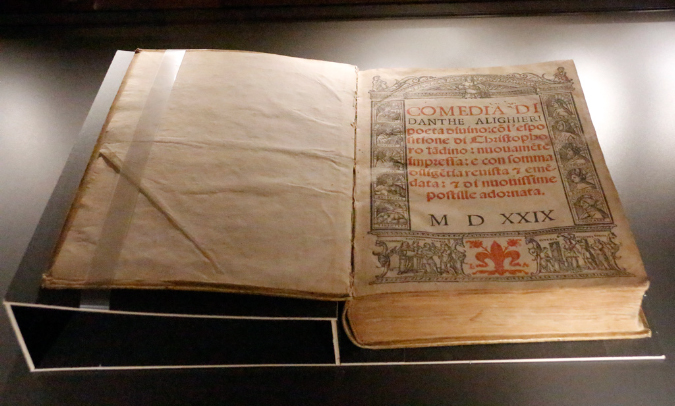 COMEDIA DI
DANTHE ALIGHIERI
poeta diuino: cõ l'espo
sitione di Christopho
ro lãdino: nuouamẽte
impressa: e con somma
diligẽtia reuista & emẽ
data: & di nouissime
postille adornata.
M D XXIX